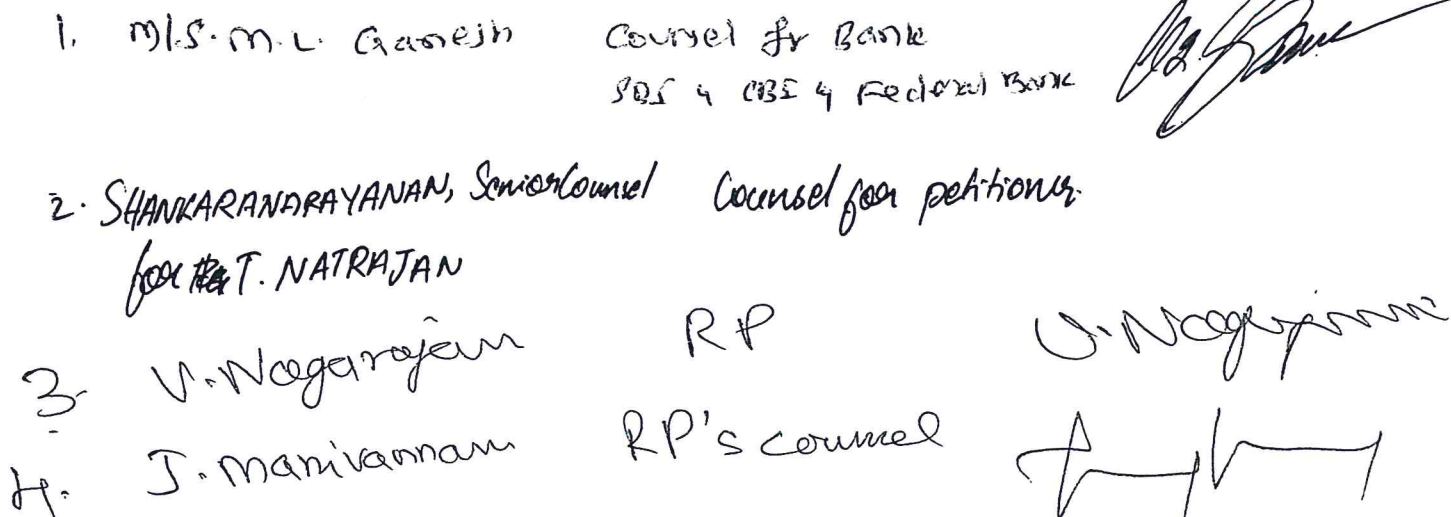 1. M/S. M.L. Ganesh Counsel fr Bank
SBI & CBI & Federal Bank
2. SHANKARANARAYANAN, Senior Counsel Counsel for petitioner.
for T. NATRAJAN
3. V. Nagarajan RP V. Nagarajan
4. J. Manivannan RP's counsel